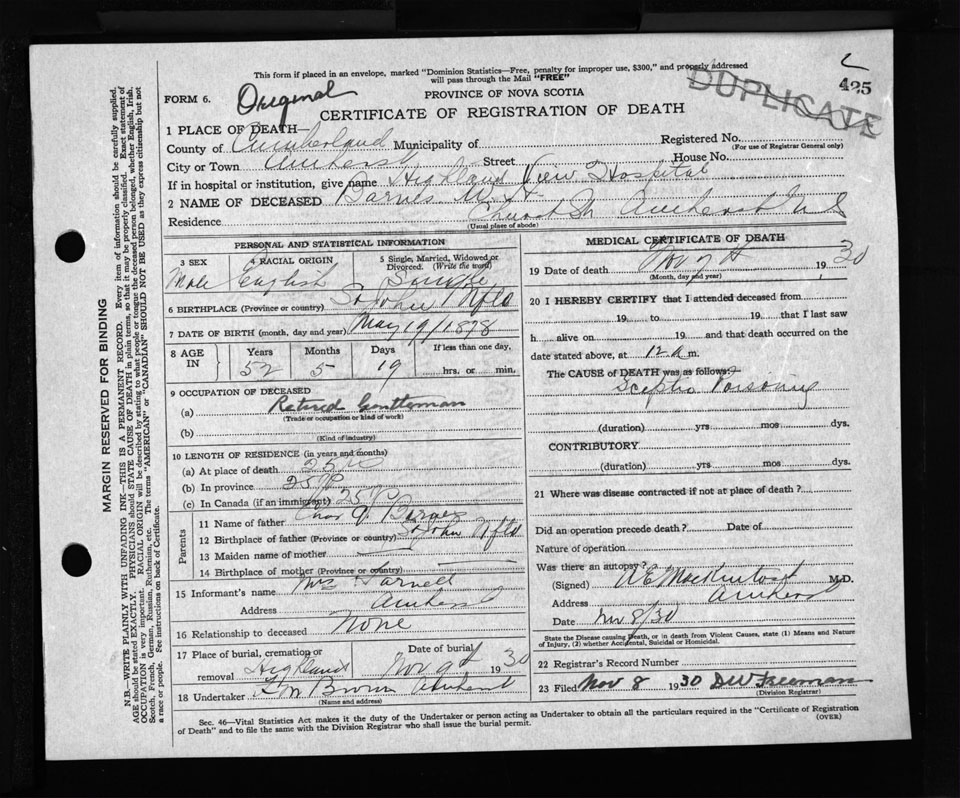 This form if placed in an envelope, marked "Dominion Statistics—Free, penalty for improper use, $300," and properly addressed
will pass through the Mail "FREE"
DUPLICATE
425
FORM 6.
Original
PROVINCE OF NOVA SCOTIA
CERTIFICATE OF REGISTRATION OF DEATH
1 PLACE OF DEATH—
County of Cumberland Municipality of Registered No.
(For use of Registrar General only)
City or Town Amherst Street House No.
If in hospital or institution, give name Highland View Hospital
2 NAME OF DECEASED Barnes
Residence Church St Amherst N S
(Usual place of abode)
PERSONAL AND STATISTICAL INFORMATION
3 SEX
Male
4 RACIAL ORIGIN
English
5 Single, Married, Widowed or Divorced. (Write the word)
Single
6 BIRTHPLACE (Province or country) St John Nfld
7 DATE OF BIRTH (month, day and year) May 19/1878
8 AGE IN
Years Months Days If less than one day,
52 5 19 hrs. or min.
9 OCCUPATION OF DECEASED
(a) Retired Gentleman
(Trade or occupation or kind of work)
(b)
(Kind of industry)
10 LENGTH OF RESIDENCE (in years and months)
(a) At place of death 25
(b) In province 25
(c) In Canada (if an immigrant) 25
Parents
11 Name of father Barnes
12 Birthplace of father (Province or country) St John Nfld
13 Maiden name of mother
14 Birthplace of mother (Province or country)
15 Informant's name Mrs
Address Amherst
16 Relationship to deceased None
17 Place of burial, cremation or removal Highland
Date of burial
Nov 9th 1930
18 Undertaker Brown Amherst
(Name and address)
MEDICAL CERTIFICATE OF DEATH
19 Date of death Nov 7th 1930
(Month, day and year)
20 I HEREBY CERTIFY that I attended deceased from
19 to 19 that I last saw
h alive on 19 and that death occurred on
date stated above, at 12 m.
The CAUSE of DEATH was as follows:
Sceptic Poisoning
(duration) yrs mos dys.
CONTRIBUTORY
(duration) yrs mos dys.
21 Where was disease contracted if not at place of death?
Did an operation precede death? Date of
Nature of operation
Was there an autopsy?
(Signed) MacKintosh M.D.
Address Amherst
Date Nov 8/30
State the Disease causing Death, or in death from Violent Causes, state (1) Means and Nature of Injury, (2) whether Accidental, Suicidal or Homicidal.
22 Registrar's Record Number
23 Filed Nov 8 1930 DW Freeman
(Division Registrar)
Sec. 46—Vital Statistics Act makes it the duty of the Undertaker or person acting as Undertaker to obtain all the particulars required in the "Certificate of Registration
of Death" and to file the same with the Division Registrar who shall issue the burial permit.
(OVER)
MARGIN RESERVED FOR BINDING
N.B.—WRITE PLAINLY WITH UNFADING INK—THIS IS A PERMANENT RECORD. Every item of information should be carefully supplied.
AGE should be stated EXACTLY. PHYSICIANS should STATE CAUSE OF DEATH in plain terms, so that it may be properly classified. Exact statement of
OCCUPATION is very important. RACIAL ORIGIN will be described by stating to what people or tongue the deceased person belonged, whether English, Irish,
Scotch, French, German, Russian, Ruthenian, etc. The terms "AMERICAN" or "CANADIAN" SHOULD NOT BE USED as they express citizenship but not
a race or people. See instructions on back of Certificate.